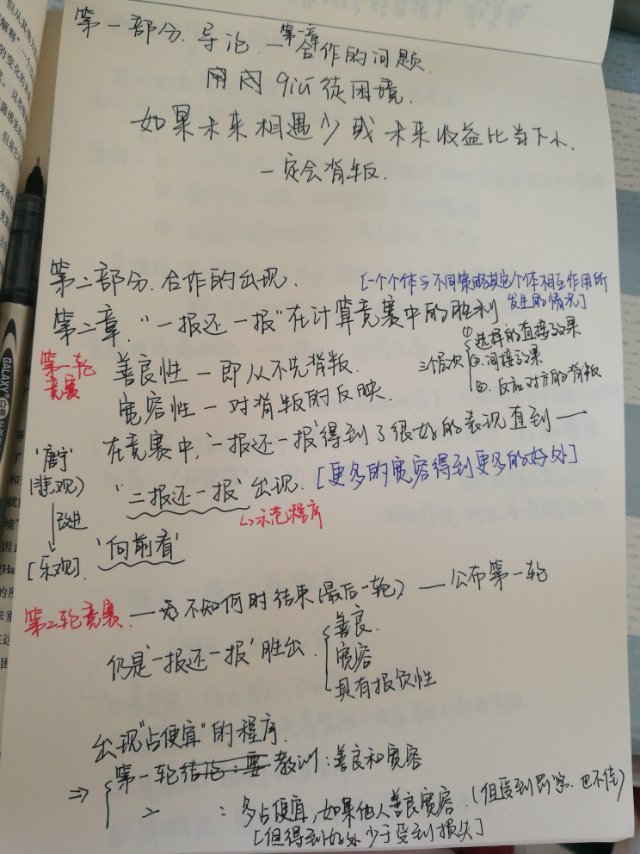 第一部分. 导论. — 第一章 合作的问题.
囚徒困境.
如果未来相遇少或未来收益比当下小.
一定会背叛.
第二部分. 合作的出现.
[一个个体与不同策略其它个体相互作用所
发生的情况]
第二章. "一报还一报"在计算竞赛中的胜利
第一轮
竞赛
善良性 — 即从不先背叛.
宽容性 — 对背叛的反映.
三个层次
① 选择的直接效果
②. 间接效果
③. 反应对方的背叛
在竞赛中, '一报还一报'得到了很好的表现直到 —
'二报还一报' 出现. [更多的宽容得到更多的好处]
↳示范程序
'唐宁'
(悲观)
↓改进
[乐观].
'向前看'
第二轮竞赛. — 不知何时结束(最后一轮) — 公布第一轮
仍是'一报还一报' 胜出.
善良.
宽容
具有报负性
出现"占便宜"的程序.
⇒ 第一轮教训: 善良和宽容
二 : 多占便宜, 如果他人善良宽容. (但受到惩罚. 也不佳)
[但得到好处少于受到损失]
GALAXY